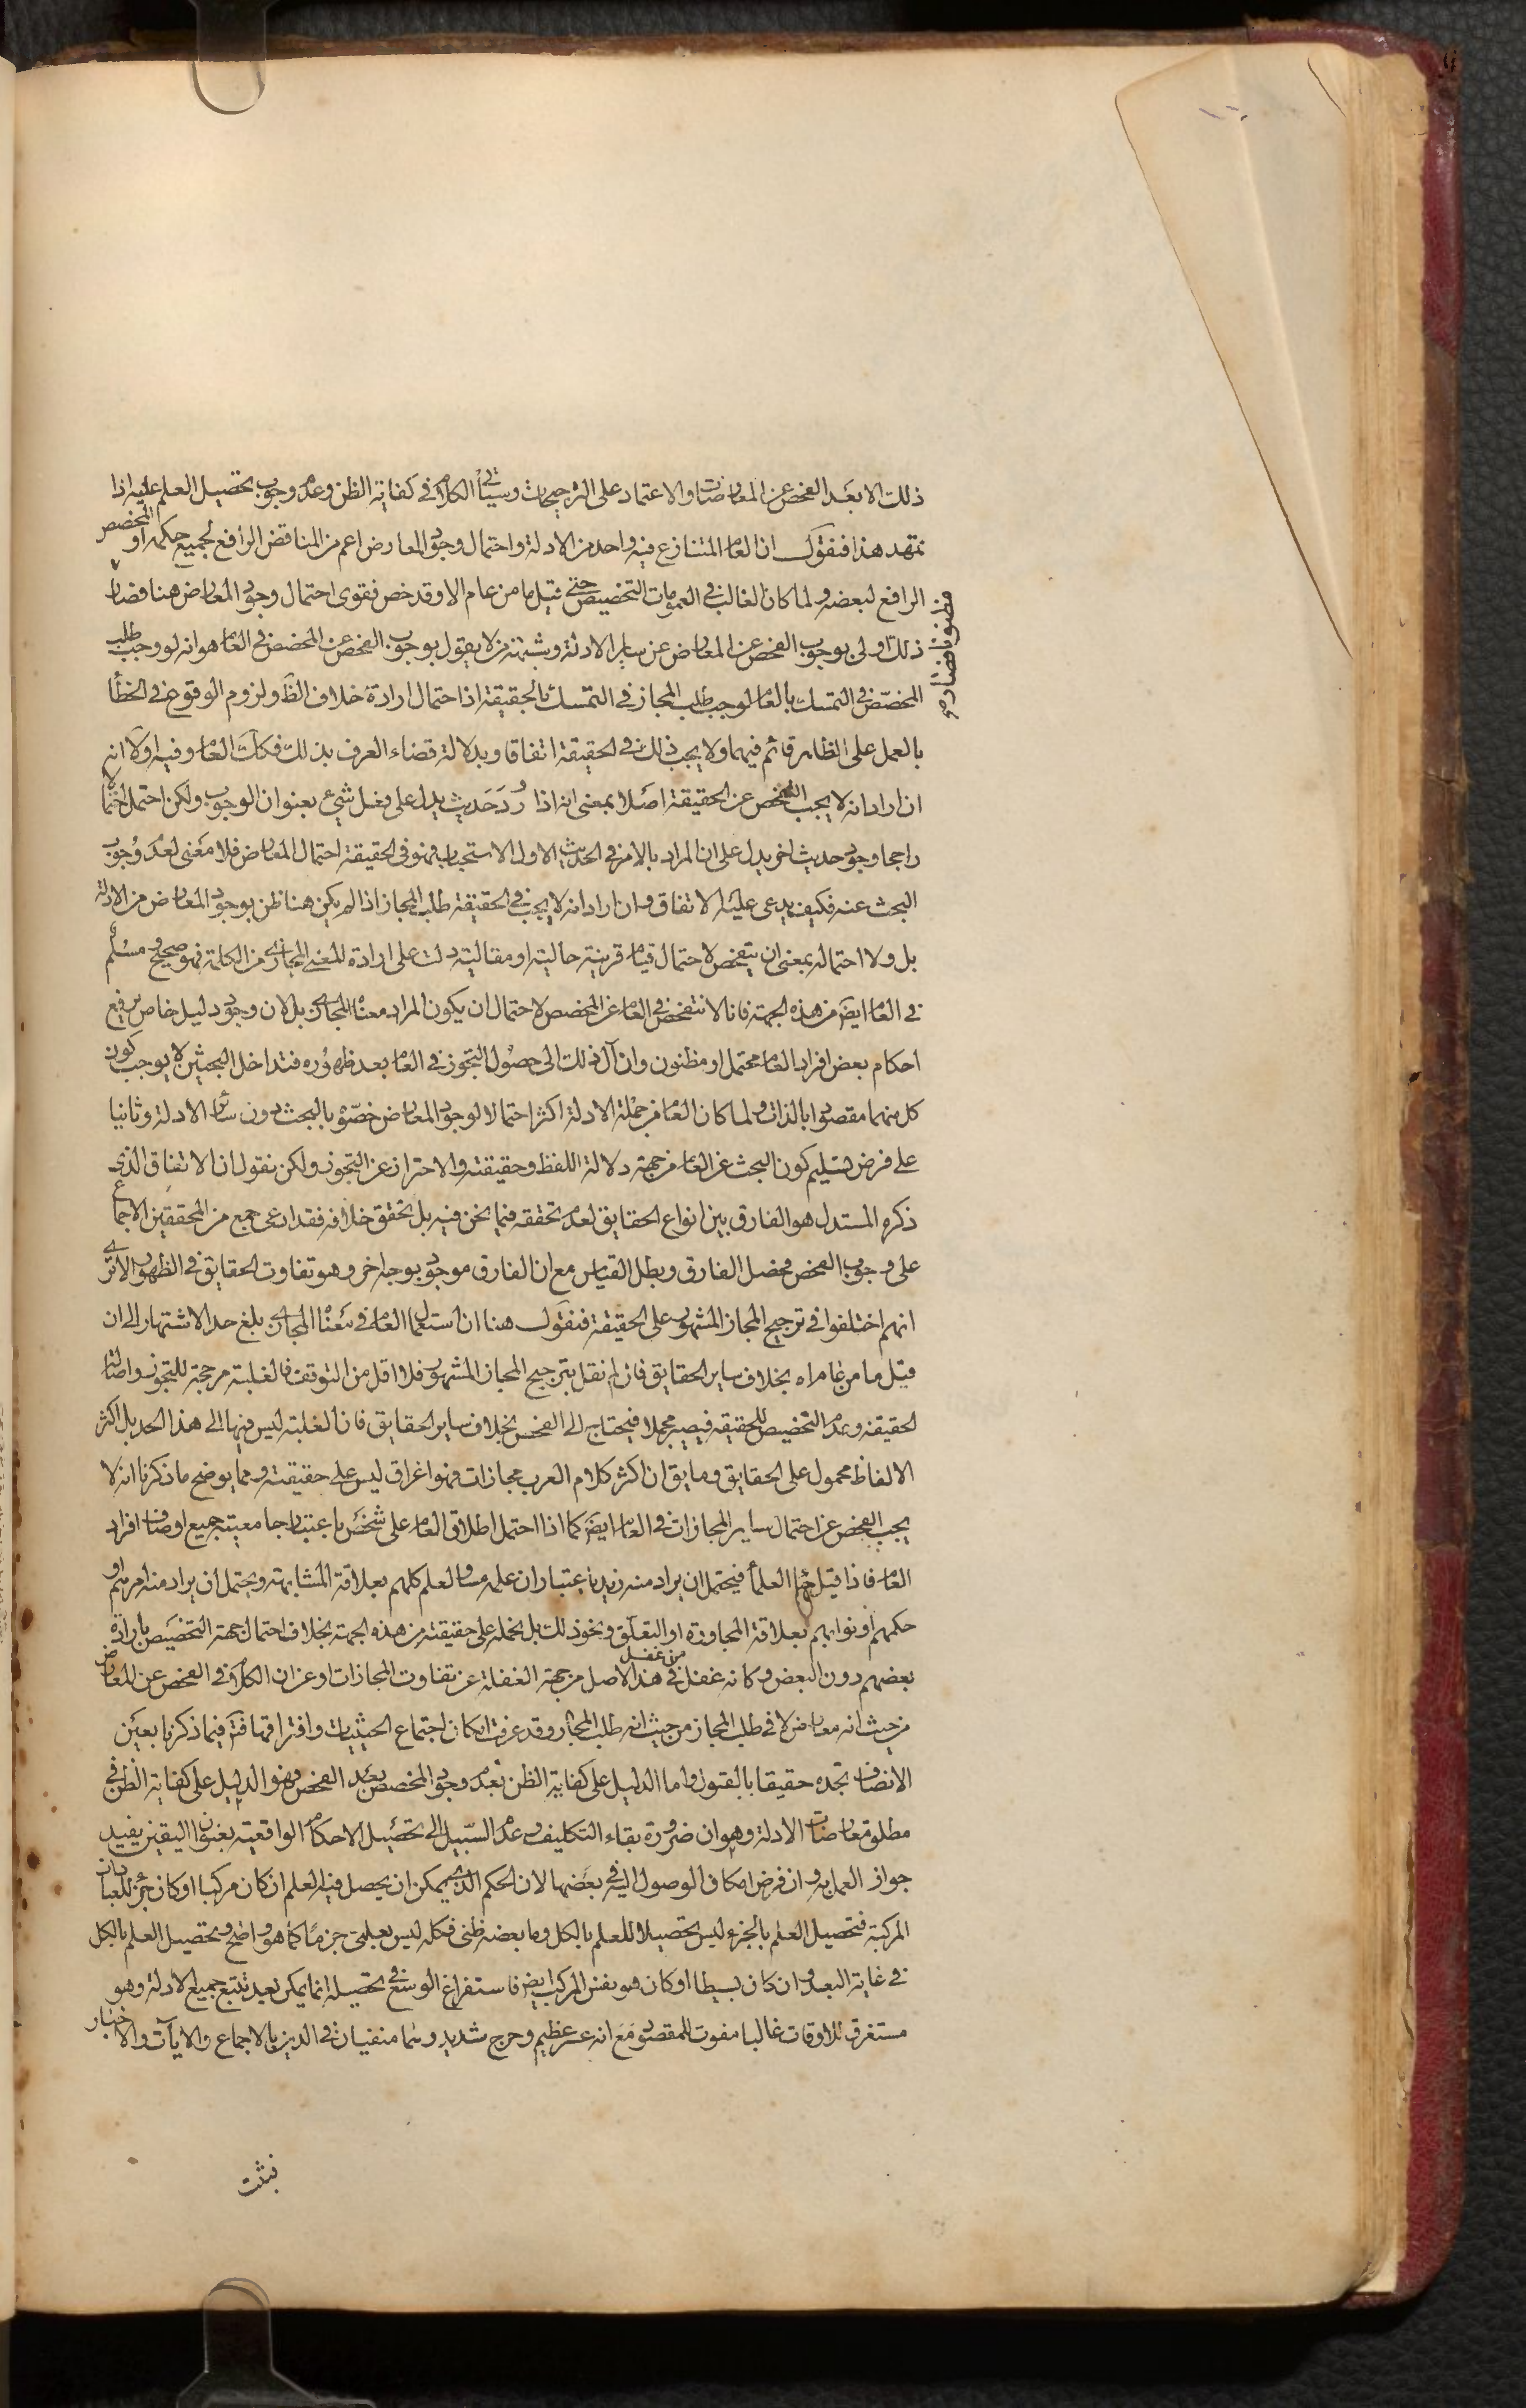 ذلك الا بعد الفحص عن المعارضات والاعتماد على الترجيحات وسيأتي الكلام في كفاية الظن وعدم وجوب تحصيل العلم عليه اذا
تمهد هذا فنقول ان العام المتنازع فيه واحد من الادلة واحتمال وجود المعارض اعم من المناقض الرافع لجميع حكمه او المخصص
الرافع لبعضه ولما كان الغالب في العمومات التخصيص حتى قيل ما من عام الا وقد خص فقوى احتمال وجود المعارض هنا فصار
مظنونا فصار
ذلك اولى بوجوب الفحص عن المعارض عن ساير الادلة وشبهة من لا يقول بوجوب الفحص عن المخصص في العام هو انه لو وجب طلب
المخصص في التمسك بالعام لوجب طلب المجاز في التمسك بالحقيقة اذ احتمال ارادة خلاف الظ ولزوم الوقوع في الخطأ
بالعمل على الظاهر قائم فيهما ولا يجب ذلك في الحقيقة اتفاقا وبدلالة قضاء العرف بذلك فكك العام وفيه اولا انه
ان اراد انه لا يجب الفحص عن الحقيقة اصلا بمعنى انه اذا ورد حديث يدل على فعل شيء بعنوان الوجوب ولكن احتمل احتمالا
راجحا وجود حديث اخر يدل على ان المراد بالامر في الحديث الاول الاستحباب فهو في الحقيقة احتمال المعارض فلا معنى لعدم وجوب
البحث عنه فكيف يدعى عليه الاتفاق وان اراد انه لا يجب في الحقيقة طلب المجاز اذا لم يكن هنا ظن بوجود المعارض من الادلة
بل ولا احتماله بمعنى ان يتفحص لاحتمال قيام قرينة حالية او مقالية دلت على ارادة المعنى المجازي من الكلمة فهو صحيح ومسلم
في العام ايضا من هذه الجهة فانا لا نتفحص في العام عن المخصص لاحتمال ان يكون المراد معناه المجازي بل لان وجود دليل خاص يرفع
احكام بعض افراد العام محتمل او مظنون وان آل ذلك الى حصول التجوز في العام بعد ظهوره فتداخل البحثين لا يوجب كون
كل منهما مقصودا بالذات ولما كان العام من جملة الادلة اكثر احتمالا لوجود المعارض خصوه بالبحث دون ساير الادلة وثانيا
على فرض تسليم كون البحث عن العام من جهة دلالة اللفظ وحقيقته والاحتراز عن التجوز ولكن نقول ان الاتفاق الذي
ذكره المستدل هو الفارق بين انواع الحقايق لعدم تحققه فيما نحن فيه بل تحقق خلافه فقد ادعى جمع من المحققين الاجماع
على وجوب الفحص فحصل الفارق وبطل القياس مع ان الفارق موجود بوجه اخر وهو تفاوت الحقايق في الظهور الا ترى
انهم اختلفوا في ترجيح المجاز المشهور على الحقيقة فنقول هنا ان استعمال العام في معناه المجازي بلغ حد الاشتهار الى ان
قيل ما من عام اه بخلاف ساير الحقايق فان لم نقل بترجيح المجاز المشهور فلا اقل من التوقف فالغلبة مرجحة للتجوز واصالة
الحقيقة وعدم التخصيص للحقيقة فيصير مجملا فيحتاج الى الفحص بخلاف ساير الحقايق فان الغلبة ليس فيها الى هذا الحد بل اكثر
الالفاظ محمول على الحقايق وما يق ان اكثر كلام العرب مجازات فهو اغراق ليس على حقيقته ومما يوضح ما ذكرنا انه لا
يجب الفحص عن احتمال ساير المجازات في العام ايض كما اذا احتمل اطلاق العام على شخص باعتبار جامعيته جميع اوصاف افراد
العام فاذا قيل العلماء فيحتمل ان يراد منه زيد باعتبار ان علمه مساو لعلم كلهم بعلاقة المشابهة ويحتمل ان يراد منه امرهم او
حكمهم او نوابهم بعلاقة المجاورة او التعلق ونحو ذلك بل نحمله على حقيقته من هذه الجهة بخلاف احتمال جهة التخصيص بارادة
بعضهم دون البعض وكانه غفل من غفل في هذا الاصل من جهة الغفلة عن تفاوت المجازات او عن ان الكلام في الفحص عن المعارض
من حيث انه معارض لا في طلب المجاز من حيث انه طلب المجاز وقد عرفت امكان اجتماع الحيثيات وافتراقها فيما ذكرنا بعين
الانصاف تجده حقيقا بالقبول واما الدليل على كفاية الظن بعدم وجود المخصص بعد الفحص فهو الدليل على كفاية الظن في
مطلق معارضات الادلة وهو ان ضرورة بقاء التكليف وعدم السبيل الى تحصيل الاحكام الواقعية بعنوان اليقين يفيد
جواز العمل به وان فرض امكان الوصول اليه في بعضها لان الحكم الذي يمكن ان يحصل فيه العلم ان كان مركبا او كان جزء للعبادات
المركبة فتحصيل العلم بالجزء ليس تحصيلا للعلم بالكل وما بعضه ظني فكله ليس بعلمي جزما كما هو واضح وتحصيل العلم بالكل
في غاية البعد وان كان بسيطا او كان هو نفس المركب ايض فاستفراغ الوسع في تحصيله انما يمكن بعد تتبع جميع الادلة وهو
مستغرق للاوقات غالبا مفوت للمقصود مع انه عسر عظيم وحرج شديد وهما منفيان في الدين بالاجماع والايات والاخبار
فثبت